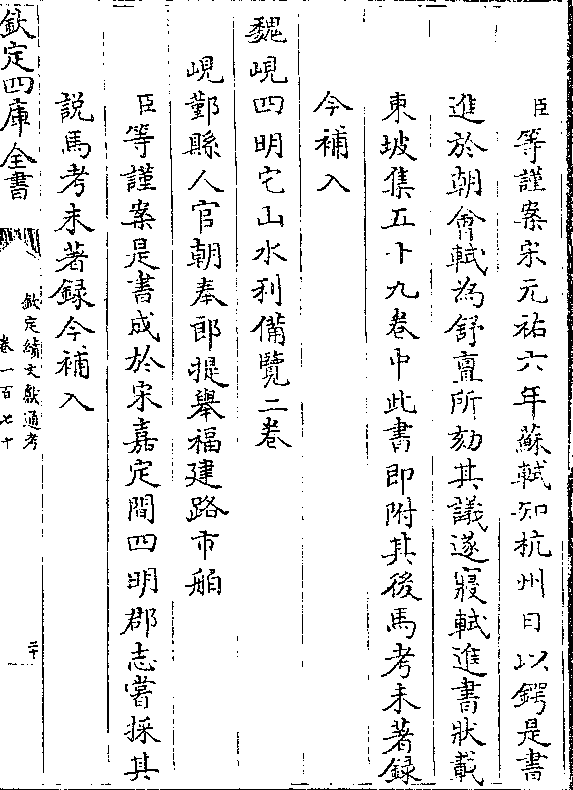 臣等謹案宋元祐六年蘇軾知杭州日以鍔是書
進於朝會軾為舒亶所劾其議遂寢軾進書狀載
東坡集五十九卷中此書即附其後馬考未著録
今補入
魏峴四明它山水利備覽二卷
峴鄞縣人官朝奉郎提舉福建路市舶
臣等謹案是書成於宋嘉定間四明郡志嘗採其
説馬考未著録今補入
欽定四庫全書
欽定續文獻通考
卷一百七十
二十